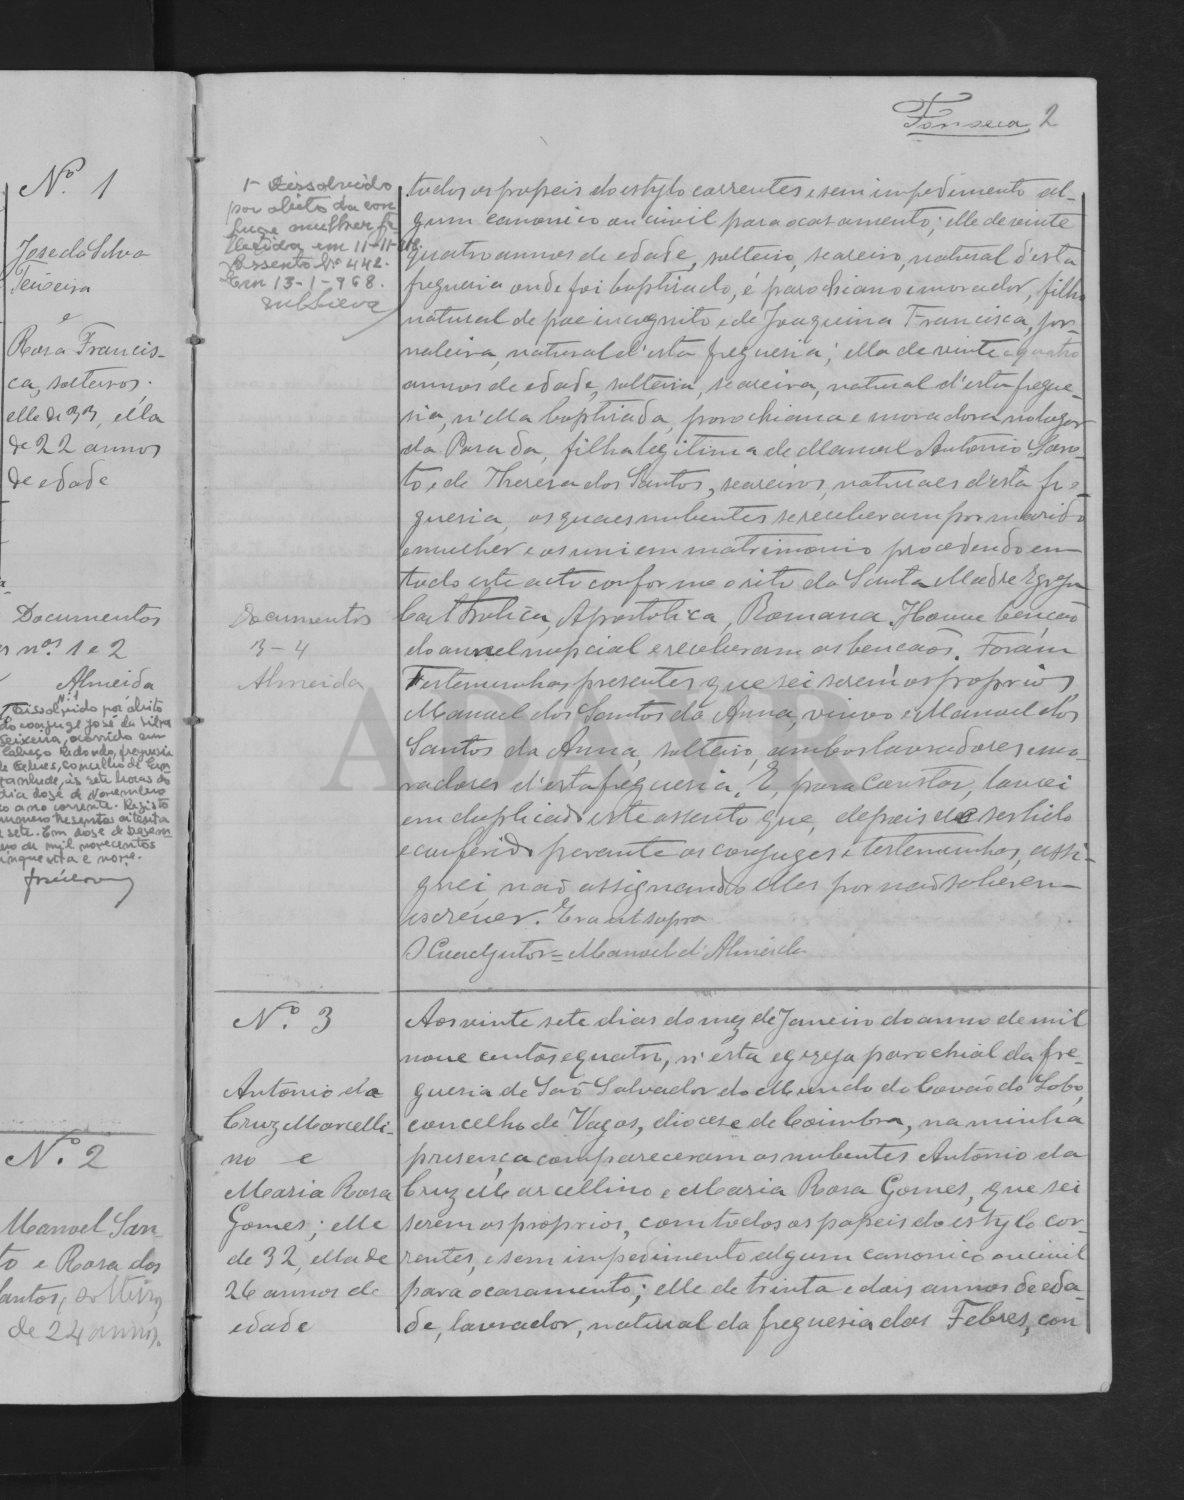 Fonseca 2
Nº 1
José da Silva
Teixeira
e
Rosa Francis-
ca, solteiros.
elle de 33, ella
de 22 annos
de edade
Documentos
nos 1 e 2
Almeida
Dissolvido por obito
do conjuge josé da silva
Teixeira, ocorrido em
Cabeço Redondo, freguesia
de Febres, concelho de Can
tanhede, ás sete horas do
dia doze de Novembro
do ano corrente. Registo
numero trezentos oitenta
e sete. Em doze de Dezem
bro de mil novecentos
cinquenta e nove.
Nº 2
Manoel San-
to e Rosa dos
Santos, solteiros
de 24 annos.
1- Dissolvido
por obito da con
juge mulher fa
lecida em 11-11-
Assento Nº 442.
Em 13-1-968.
todos os papeis do estylo correntes e sem impedimento al-
gum canonico ou civil para o casamento; elle de vinte
quatro annos de edade, solteiro, seareiro, natural d'esta
freguesia onde foi baptisado, é parochiano e morador, filho
natural de pae incognito e de Joaquina Francisca, jor-
naleira, natural d'esta freguesia; ella de vinte e quatro
annos de edade, solteira, seareira, natural d'esta fregue-
sia, n'ella baptisada, parochiana e moradora no lugar
da Parada, filha legitima de Manoel Antonio San-
to e de Theresa dos Santos, seareiros, naturaes d'esta fre-
guesia, os quaes nubentes se receberam por marido
e mulher e os uni em matrimonio procedendo em
tudo este acto conforme o rito da Santa Madre Egreja
Catholica, Apostolica, Romana. Houve benção
do annel nupcial e receberam as bençãos. Foram
Testemunhas presentes, que sei serem os proprios
Manuel dos Santos da Anna, viuvo e Manuel dos
Santos da Anna, solteiro, ambos lavradores e mo-
radores d'esta freguesia. E, para constar, lavrei
em duplicado este assento que, depois de ser lido
e conferido perante os conjuges e testemunhas, assi-
gnei, não assignando elles por não saberem
escrever. Era ut supra
O Coadjutor = Manoel d'Almeida
Documentos
3-4
Almeida
Nº 3
Antonio da
Cruz Marcelli-
no e
Maria Rosa
Gomes; elle
de 32, ella de
26 annos de
edade
Aos vinte sete dias do mez de Janeiro do anno de mil
nove centos e quatro, n'esta egreja parochial da fre-
guesia de São Salvador do Mundo do Covão do Lobo,
concelho de Vagos, diocese de Coimbra, na minha
presença compareceram os nubentes Antonio da
Cruz Marcellino e Maria Rosa Gomes, que sei
serem os proprios, com todos os papeis do estylo cor-
rentes, e sem impedimento algum canonico ou civil
para o casamento; elle de trinta e dois annos de eda-
de, lavrador, natural da freguesia das Febres, con